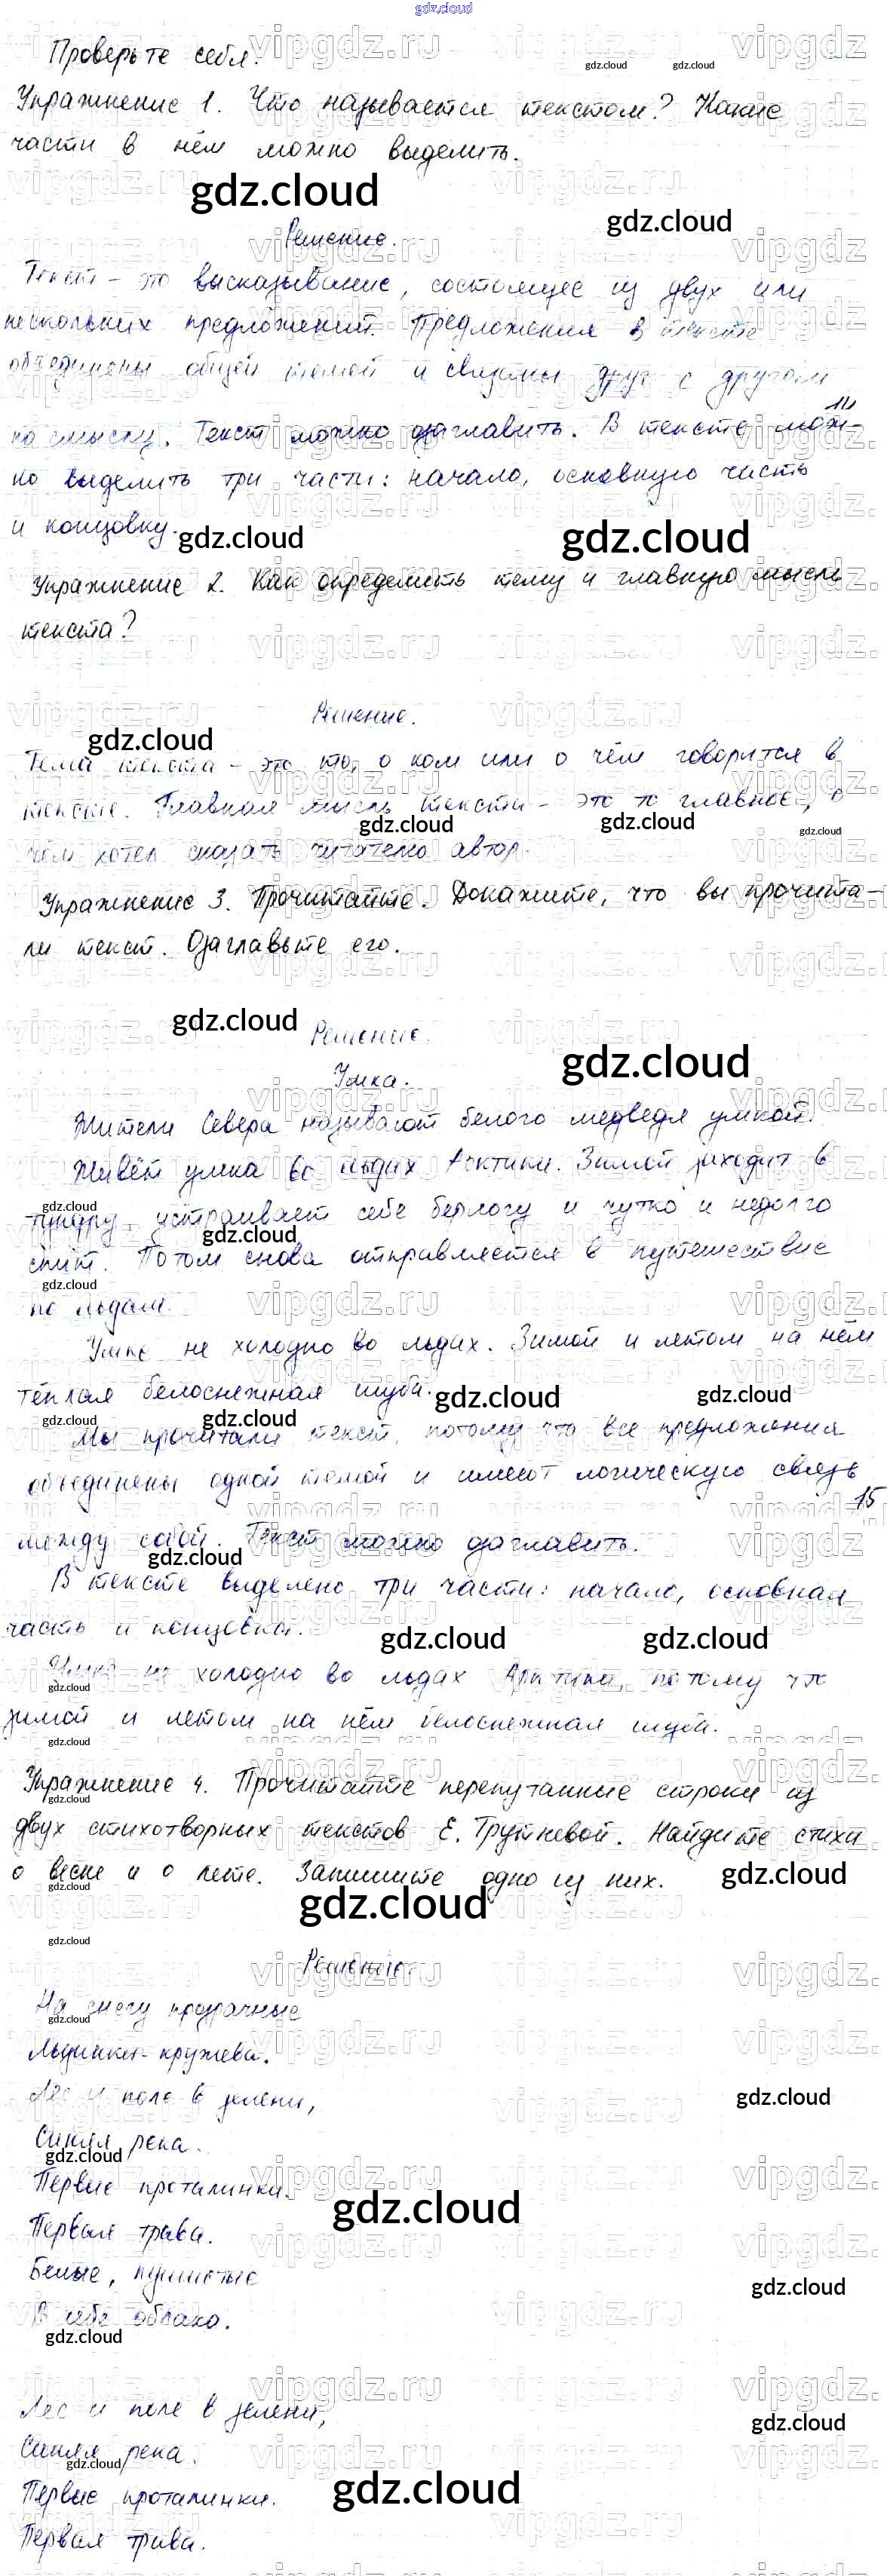 gdz.cloud
Проверьте себя.
Упражнение 1. Что называется текстом? Какие
части в нём можно выделить.
Решение.
Текст – это высказывание, состоящее из двух или
нескольких предложений. Предложения в тексте
объединены общей темой и связаны друг с другом
по смыслу. Текст можно озаглавить. В тексте мож-
14
но выделить три части: начало, основную часть
и концовку.
Упражнение 2. Как определить тему и главную мысль
текста?
Решение.
Тема текста – это то, о ком или о чём говорится в
тексте. Главная мысль текста – это то главное, о
чём хотел сказать читателю автор.
Упражнение 3. Прочитайте. Докажите, что вы прочита-
ли текст. Озаглавьте его.
Решение.
Умка.
Жители Севера называют белого медведя умкой.
Живёт умка во льдах Арктики. Зимой заходит в
тундру, устраивает себе берлогу и чутко и недолго
спит. Потом снова отправляется в путешествие
по льдам.
Умке не холодно во льдах. Зимой и летом на нём
тёплая белоснежная шуба.
Мы прочитали текст, потому что все предложения
объединены одной темой и имеют логическую связь
15
между собой. Текст можно озаглавить.
В тексте выделено три части: начало, основная
часть и концовка.
Умке не холодно во льдах Арктики, потому что
зимой и летом на нём белоснежная шуба.
Упражнение 4. Прочитайте перепутанные строки из
двух стихотворных текстов Е. Трутневой. Найдите стихи
о весне и о лете. Запишите одно из них.
Решение.
На снегу прозрачные
Льдинки-кружева.
Лес и поле в зелени,
Синяя река.
Первые проталинки.
Первая трава.
Белые, пушистые
В небе облака.
Лес и поле в зелени,
Синяя река.
Первые проталинки.
Первая трава.